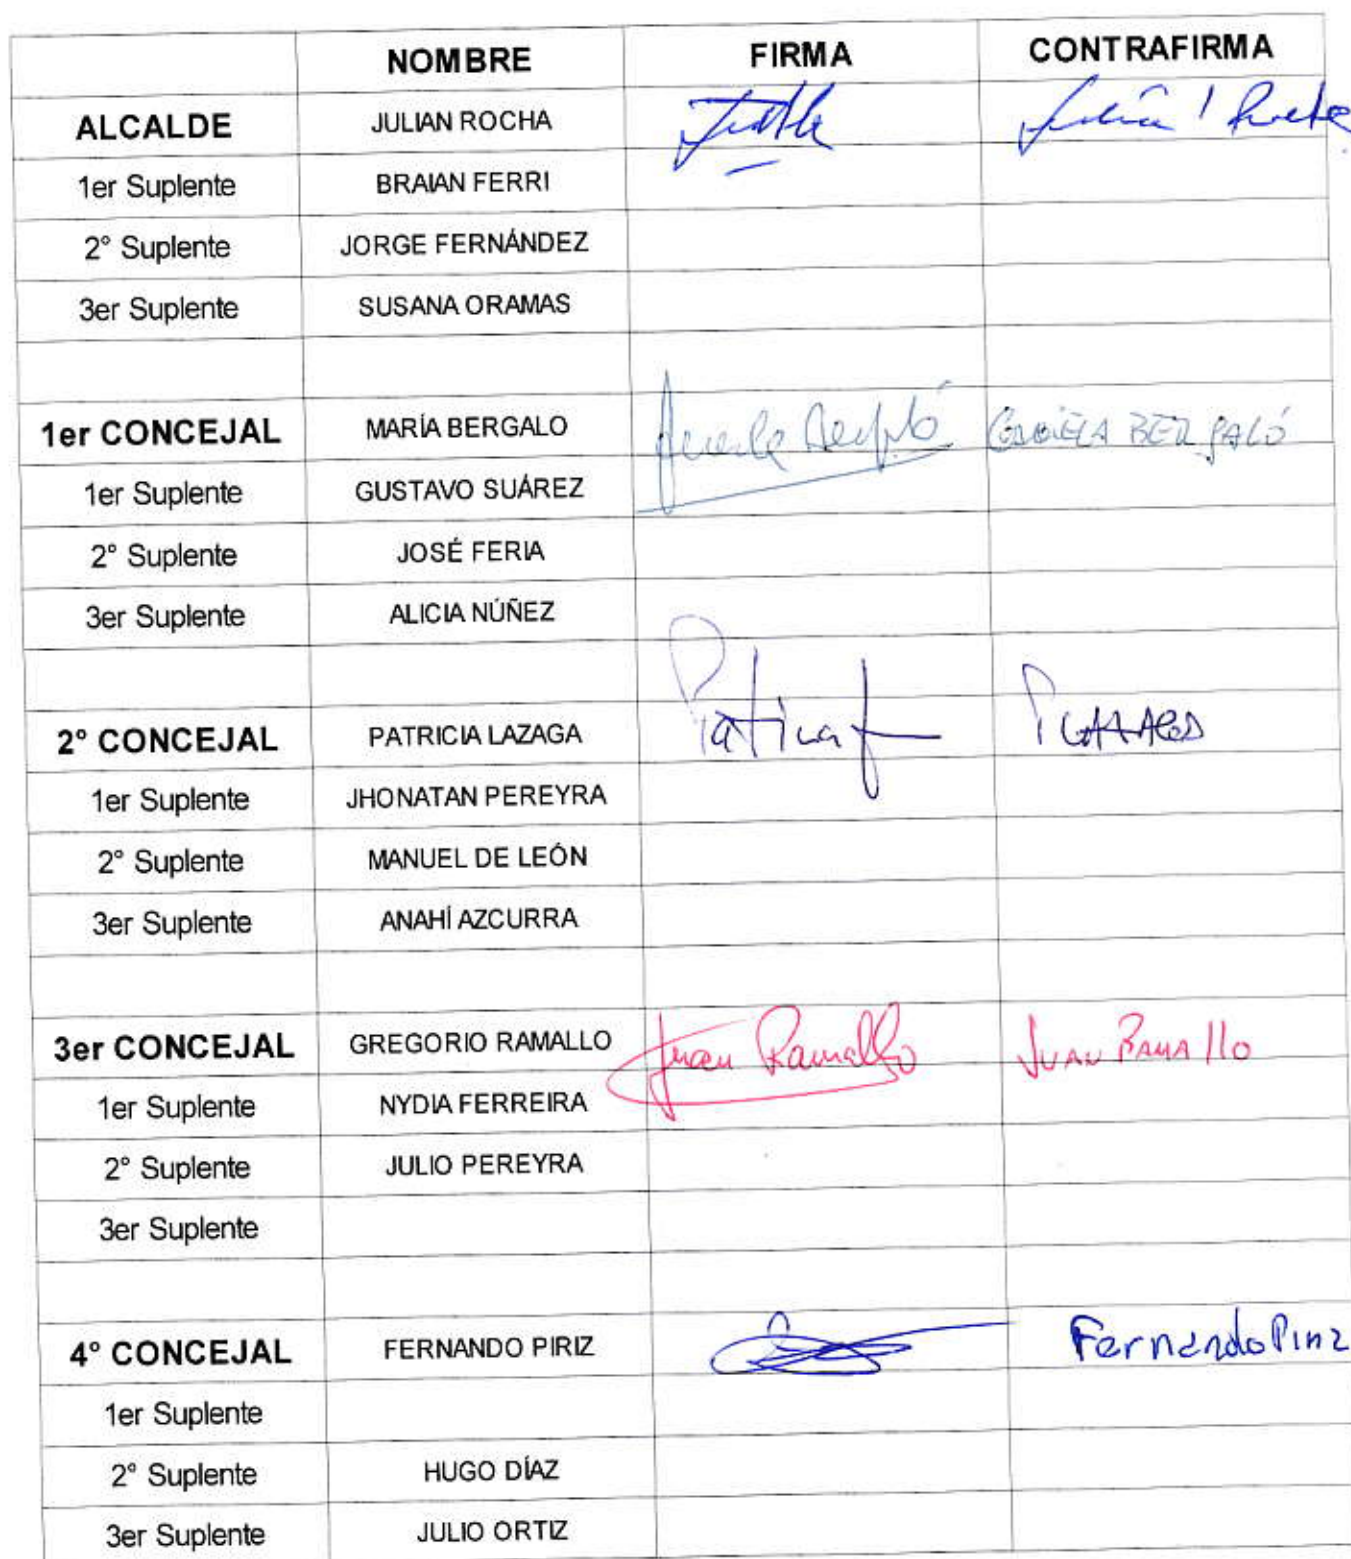 NOMBRE FIRMA CONTRAFIRMA
ALCALDE JULIAN ROCHA
1er Suplente BRAIAN FERRI
2° Suplente JORGE FERNÁNDEZ
3er Suplente SUSANA ORAMAS
1er CONCEJAL MARÍA BERGALO BERGALÓ
1er Suplente GUSTAVO SUÁREZ
2° Suplente JOSÉ FERIA
3er Suplente ALICIA NÚÑEZ
2° CONCEJAL PATRICIA LAZAGA
1er Suplente JHONATAN PEREYRA
2° Suplente MANUEL DE LEÓN
3er Suplente ANAHÍ AZCURRA
3er CONCEJAL GREGORIO RAMALLO Juan Ramallo JUAN RAMAllO
1er Suplente NYDIA FERREIRA
2° Suplente JULIO PEREYRA
3er Suplente
4° CONCEJAL FERNANDO PIRIZ Fernando Piriz
1er Suplente
2° Suplente HUGO DÍAZ
3er Suplente JULIO ORTIZ